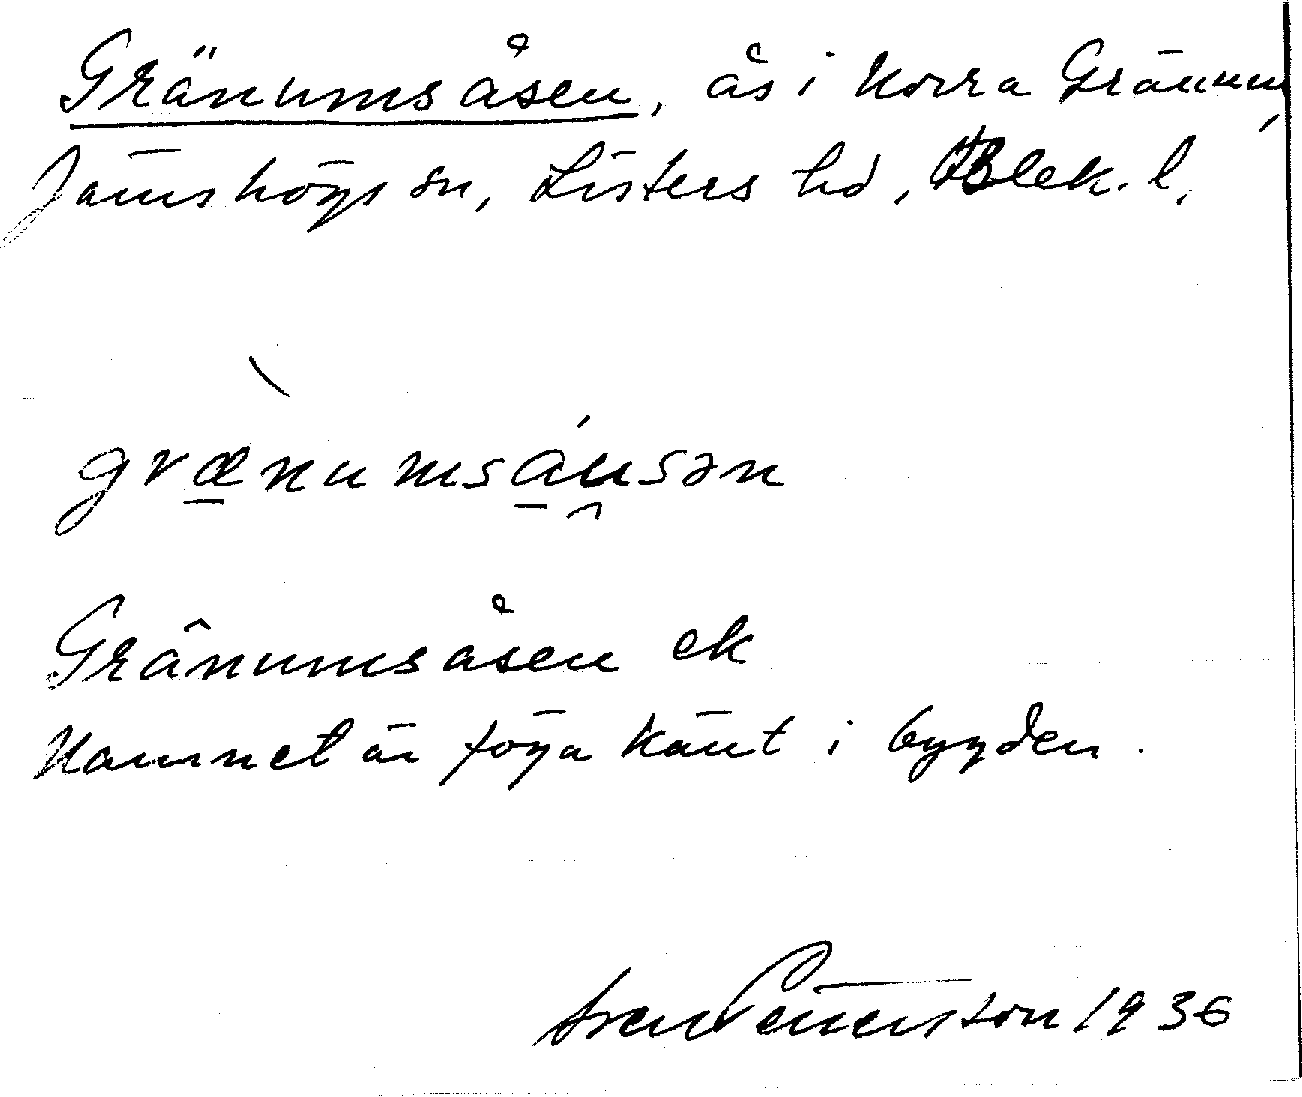 Gränumsåsen, ås i Norra Gränum,
Jämshögs sn, Listers hd, Blek. l.
grænumsáusən
Gränumsåsen ek
Namnet är föga känt i bygden.
Sven Petterson 1936